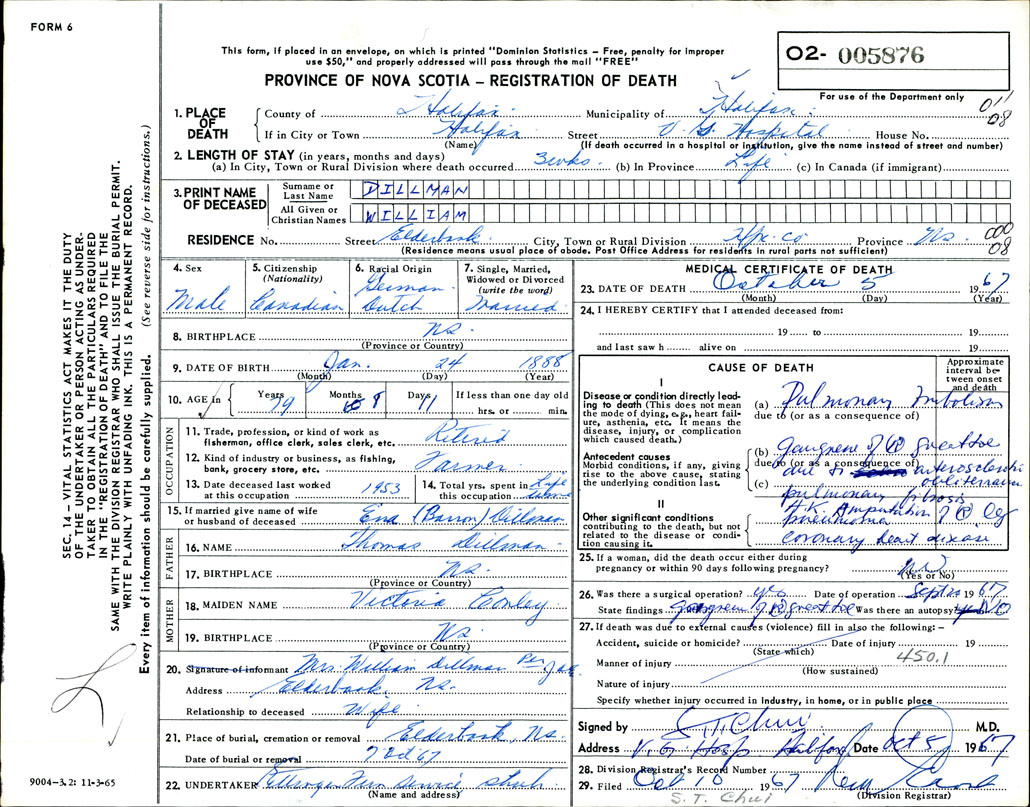 FORM 6
This form, if placed in an envelope, on which is printed "Dominion Statistics – Free, penalty for improper
use $50," and properly addressed will pass through the mail "FREE"
PROVINCE OF NOVA SCOTIA – REGISTRATION OF DEATH
O2- 005876
For use of the Department only
011
08
1. PLACE OF DEATH County of Halifax Municipality of Halifax
If in City or Town Halifax Street V. G. Hospital House No.
(Name) (If death occurred in a hospital or institution, give the name instead of street and number)
2. LENGTH OF STAY (in years, months and days)
(a) In City, Town or Rural Division where death occurred 3 wks. (b) In Province Life (c) In Canada (if immigrant)
3. PRINT NAME OF DECEASED
Surname or Last Name DILLMAN
All Given or Christian Names WILLIAM
RESIDENCE No. Street Elderbank City, Town or Rural Division Hfx. Co Province NS.
000
08
(Residence means usual place of abode. Post Office Address for residents in rural parts not sufficient)
4. Sex Male
5. Citizenship (Nationality) Canadian
6. Racial Origin German Dutch
7. Single, Married, Widowed or Divorced (write the word) Married
8. BIRTHPLACE NS.
(Province or Country)
9. DATE OF BIRTH Jan. 24 1888
(Month) (Day) (Year)
10. AGE in Years 79 Months 8 Days 11 If less than one day old
hrs. or min.
OCCUPATION
11. Trade, profession, or kind of work as fisherman, office clerk, sales clerk, etc. Retired
12. Kind of industry or business, as fishing, bank, grocery store, etc. Farmer
13. Date deceased last worked at this occupation 1953
14. Total yrs. spent in this occupation Life
15. If married give name of wife or husband of deceased Ena (Barron) Dillman
FATHER
16. NAME Thomas Dillman
17. BIRTHPLACE NS.
(Province or Country)
MOTHER
18. MAIDEN NAME Victoria Conley
19. BIRTHPLACE NS
(Province or Country)
20. Signature of informant Mrs. William Dillman Per
Address Elderbank, NS.
Relationship to deceased Wife
21. Place of burial, cremation or removal Elderbank, NS.
Date of burial or removal 7 Oct 67
22. UNDERTAKER
(Name and address)
MEDICAL CERTIFICATE OF DEATH
23. DATE OF DEATH October 5 1967
(Month) (Day) (Year)
24. I HEREBY CERTIFY that I attended deceased from:
19 to 19
and last saw h alive on 19
CAUSE OF DEATH
Approximate interval between onset and death
I
Disease or condition directly leading to death (This does not mean the mode of dying, e.g., heart failure, asthenia, etc. It means the disease, injury, or complication which caused death.)
(a) Pulmonary Embolism
due to (or as a consequence of)
Antecedent causes
Morbid conditions, if any, giving rise to the above cause, stating the underlying condition last.
(b) Gangrene of (R) great toe
due to (or as a consequence of)
due to arteriosclerotic
(c) obliterans
pulmonary fibrosis
II
Other significant conditions
contributing to the death, but not related to the disease or condition causing it.
A.K. Amputation of (R) leg
pneumonia
coronary heart disease
25. If a woman, did the death occur either during pregnancy or within 90 days following pregnancy?
(Yes or No)
26. Was there a surgical operation? yes Date of operation 1967
State findings gangrene of (R) great toe Was there an autopsy? NO
27. If death was due to external causes (violence) fill in also the following: –
Accident, suicide or homicide? Date of injury 19
(State which)
450.1
Manner of injury
(How sustained)
Nature of injury
Specify whether injury occurred in Industry, in home, or in public place
Signed by S.T. Chui M.D.
Address V. G. Hosp Halifax Date Oct 5, 1967
28. Division Registrar's Record Number
29. Filed Oct 10 1967
(Division Registrar)
S. T. Chui
SEC. 14 – VITAL STATISTICS ACT MAKES IT THE DUTY
OF THE UNDERTAKER OR PERSON ACTING AS UNDER-
TAKER TO OBTAIN ALL THE PARTICULARS REQUIRED
IN THE "REGISTRATION OF DEATH" AND TO FILE THE
SAME WITH THE DIVISION REGISTRAR WHO SHALL ISSUE THE BURIAL PERMIT.
WRITE PLAINLY WITH UNFADING INK. THIS IS A PERMANENT RECORD.
Every item of information should be carefully supplied. (See reverse side for instructions.)
9004–3.2: 11-3-65